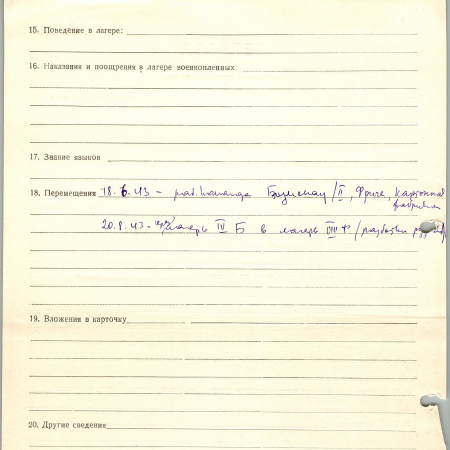 15. Поведение в лагере:
16. Наказания и поощрения в лагере военнопленных
17. Знание языков
18. Перемещения 18.6.43 - раб. команда /II, Фриче, картонная
фабрика
20.8.43 - через лагерь IV Б в лагерь VIII F /
19. Вложения в карточку
20. Другие сведения